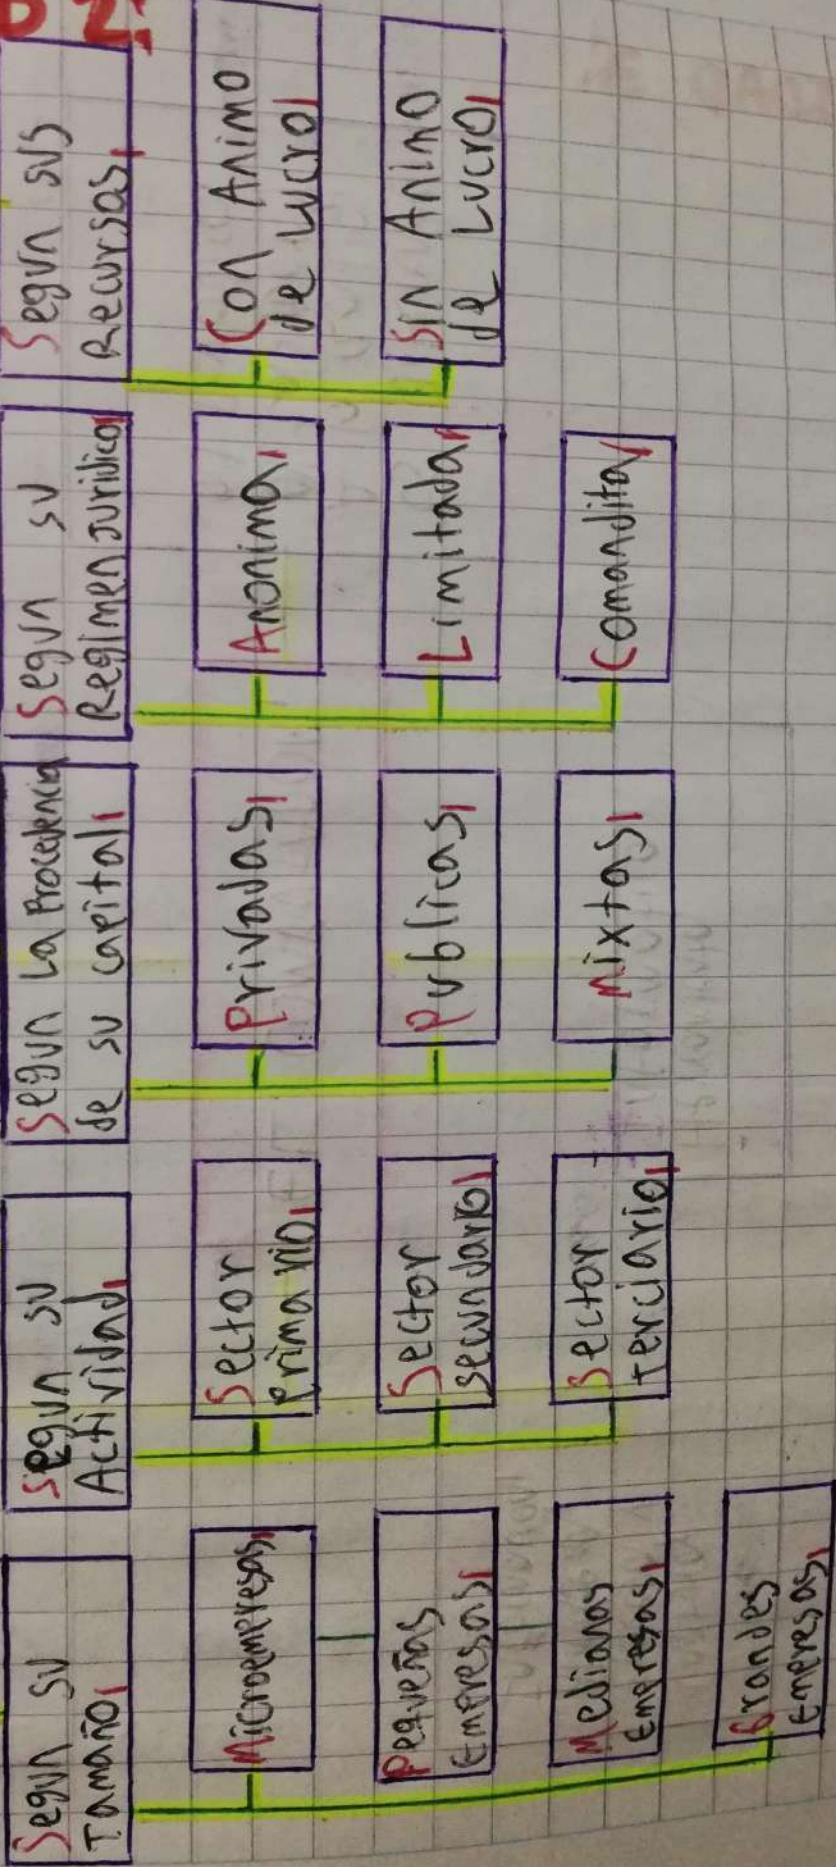 Segun su
Tamaño
Microempresas
Pequeñas
Empresas
Medianas
Empresas
Grandes
Empresas
Segun su
Actividad
Sector
Primario
Sector
secundario
Sector
terciario
Segun La Procedencia
de su capital
Privadas
Publicas
Mixtas
Segun su
Regimen Juridico
Anonima
Limitada
Comandita
Segun sus
Recursos
Con Animo
de Lucro
Sin Animo
de Lucro